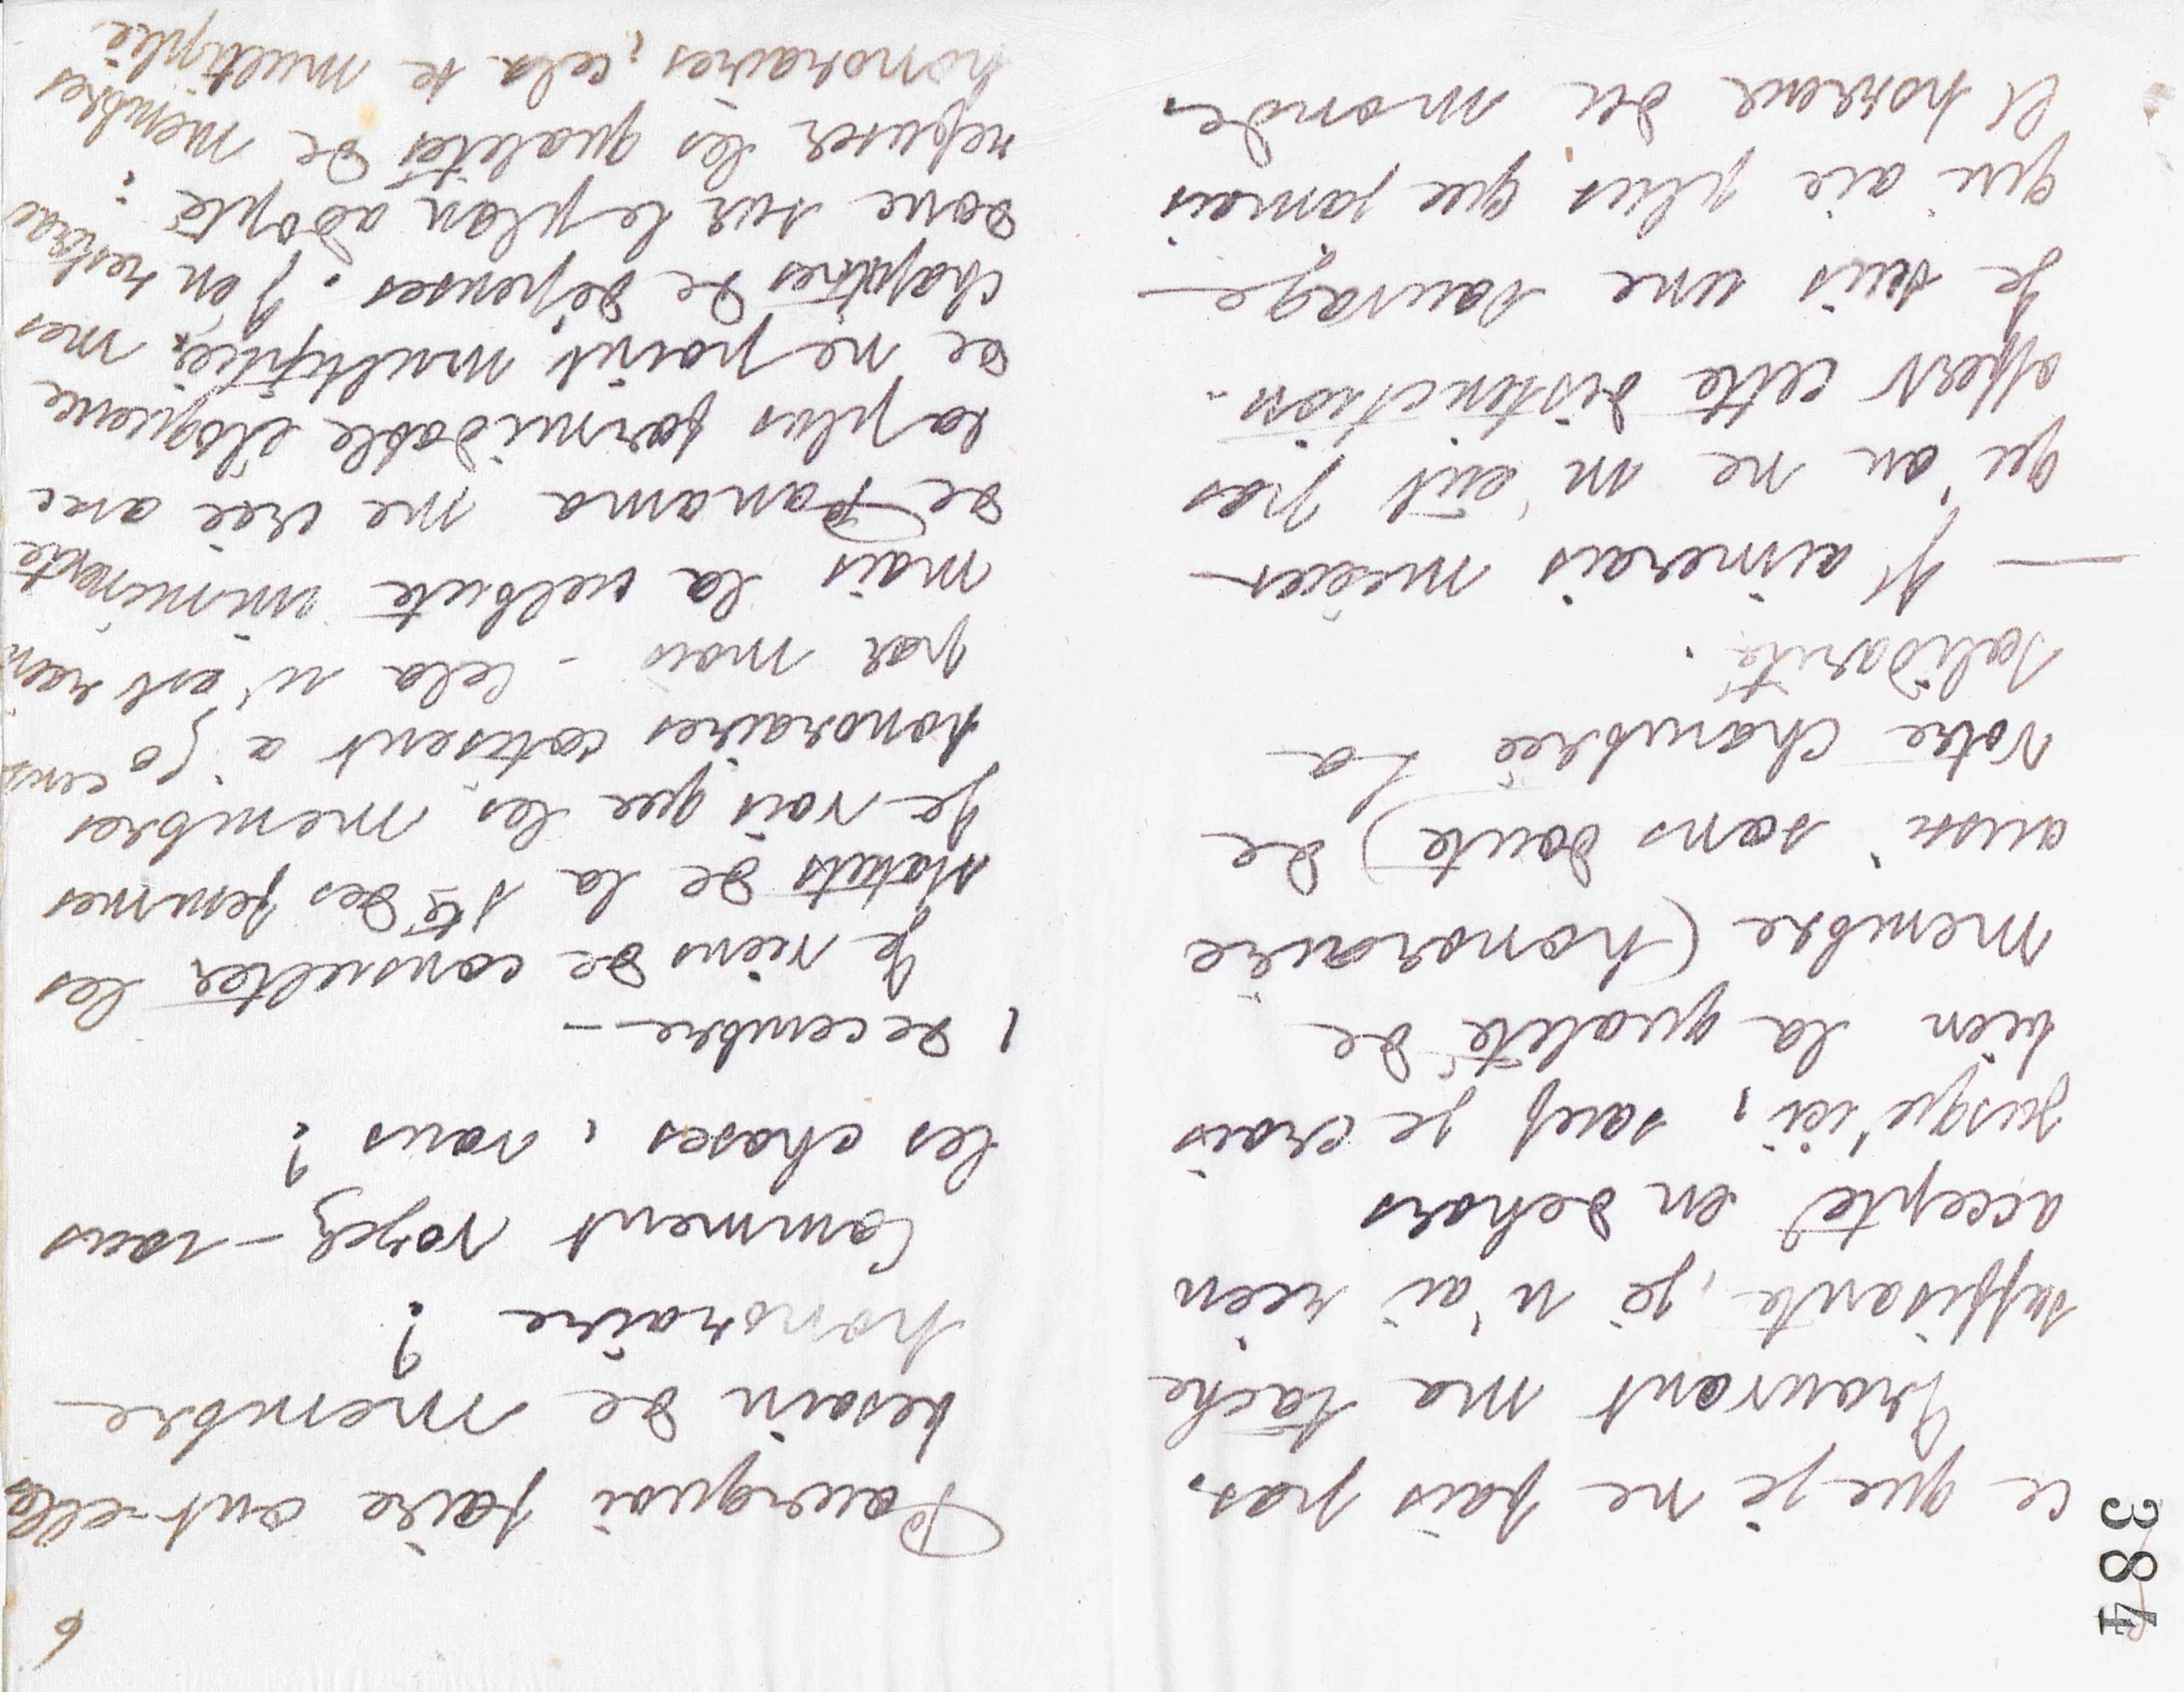 384
ce que je ne fais pas.
Trouvant ma tâche
suffisante, je n'ai rien
accepté en dehors
jusqu'ici, sauf je crois
bien la qualité de
membre (honoraire
aussi sans doute) de
votre chambrée La
Solidarité.
— J'aimerais mieux
qu'on ne m'eût pas
offert cette distinction.
Je suis une sauvage
qui aie plus que jamais
horreur du monde.
6
Pourquoi faire ont-elles
besoin de membre
honoraire ?
Comment voyez-vous
les choses, vous ?
1 décembre —
Je viens de consulter les
statuts de la Sté des femmes
Je vois que les membres
honoraires cotisent à 50 cens
par mois - cela n'est rien
mais la culbute imminente
de Panama me crie avec
la plus formidable éloquence
de ne point multiplier mes
chapitres de dépenses. J'en resterai
donc sur le plan adopté :
refuser les qualités de membres
honoraires ; cela se multiplie